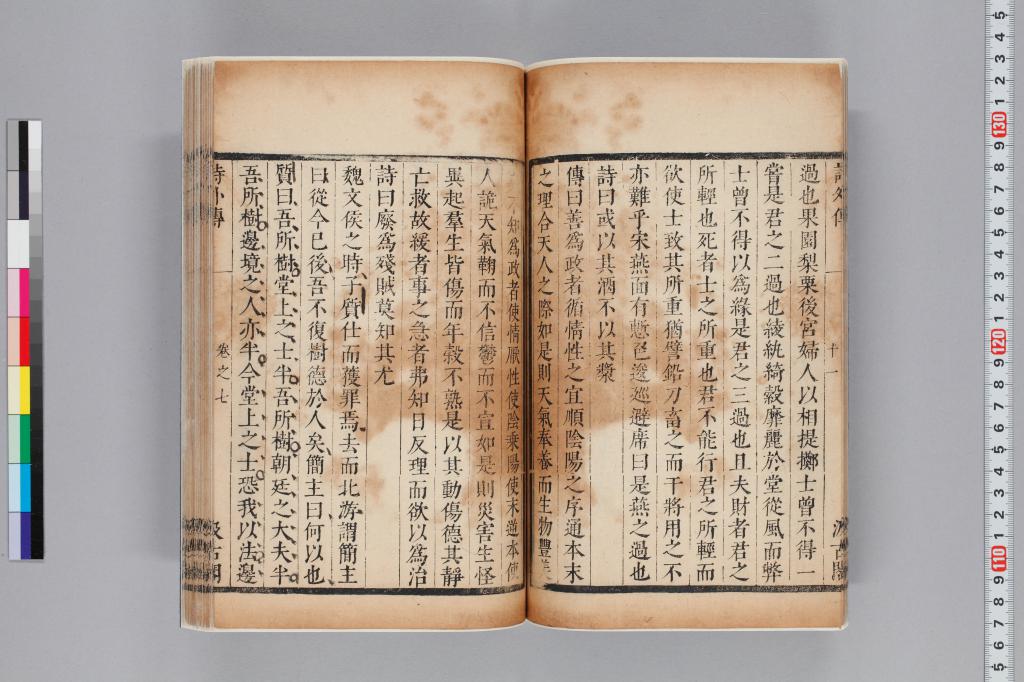 過也果園梨栗後宮婦人以相提擲士曾不得一
嘗是君之二過也綾紈綺縠靡麗於堂從風而弊
士曾不得以為緣是君之三過也且夫財者君之
所輕也死者士之所重也君不能行君之所輕而
欲使士致其所重猶譬鉛刀畜之而干將用之不
亦難乎宋燕面有慙色逡巡避席曰是燕之過也
詩曰或以其酒不以其漿
傳曰善為政者循情性之宜順陰陽之序通本末
之理合天人之際如是則天氣奉養而生物豐美
不知為政者使情厭性使陰乘陽使末逆本使
人詭天氣鞠而不信鬱而不宣如是則災害生怪
異起羣生皆傷而年榖不熟是以其動傷德其靜
亡救故緩者事之急者弗知日反理而欲以為治
詩曰廢為殘賊莫知其尤
魏文侯之時子質仕而獲罪焉去而北游謂簡主
曰從今已後吾不復樹德於人矣簡主曰何以也
質曰吾所樹堂上之士半吾所樹朝廷之大夫半
吾所樹邊境之人亦半今堂上之士恐我以法邊
詩外傳 卷之七 汲古閣